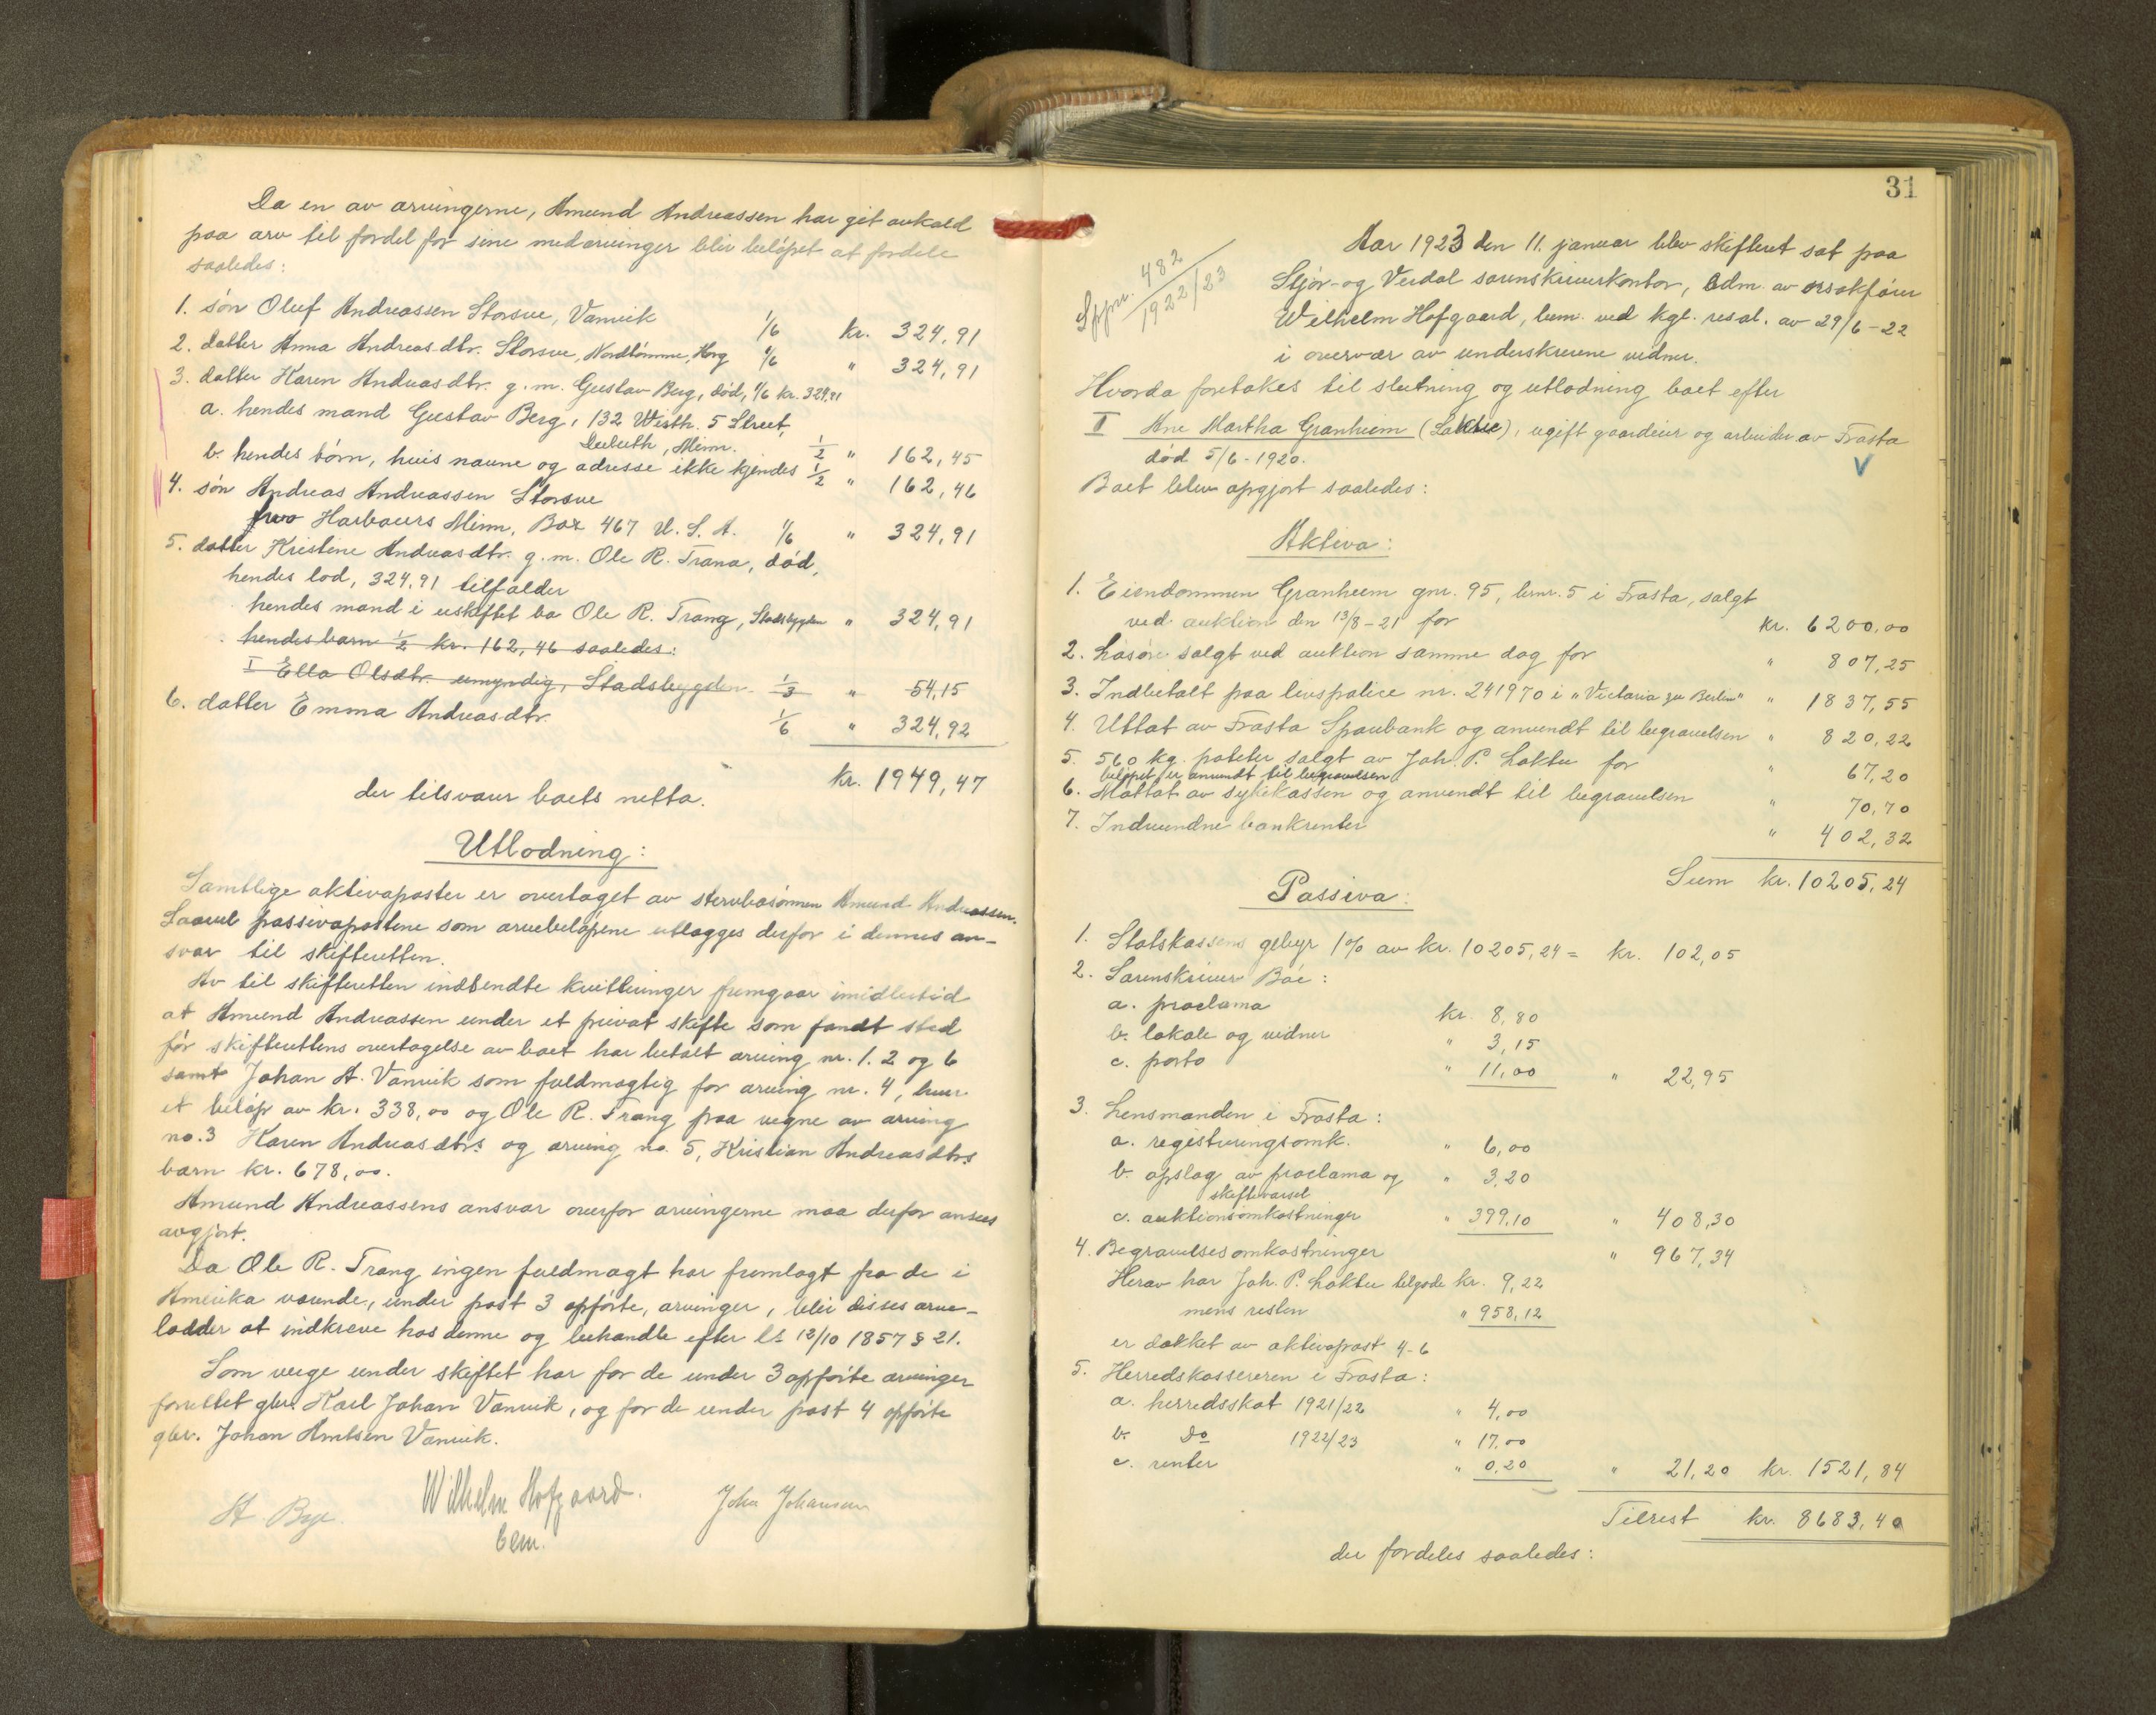 Da en av arvingerne, Amund Andreassen har git avkald
paa arv til fordel for sine medarvinger blir beløpet at fordele
saaledes:
1. søn Oluf Andreassen Storsve, Vanvik 1/6 kr. 324,91
2. datter Anna Andreasdtr. Storsve, Nordtømme, Horg 1/6 " 324,91
3. datter Karen Andreasdtr. g.m. Gustav Berg, død, 1/6 kr. 324,91
a. hendes mand Gustav Berg, 132 Westh. 5 Street,
Duluth, Minn. 1/2 " 162,45
b. hendes børn, hvis navne og adresse ikke kjendes 1/2 " 162,46
4. søn Andreas Andreassen Storsve
Two Harbours Minn, Box 467 U.S.A. 1/6 " 324,91
5. datter Kristine Andreasdtr. g.m. Ole R. Trana, død,
hendes lod, 324,91 tilfalder
hendes mand i uskiftet bo Ole R. Trang, Stadsbygden " 324,91
hendes barn 1/2 kr. 162,46 saaledes:
I Ella Olsdtr. umyndig, Stadsbygden 1/3 " 54,15
6. datter Emma Andreasdtr. 1/6 " 324,92
kr. 1949,47
der tilsvarer boets netto.
Utlodning:
Samtlige aktivaposter er overtaget av stervbosønnen Amund Andreassen.
Saavel passivapostene som arvebeløpene utlægges derfor i dennes an-
svar til skifteretten.
Av til skifteretten indsendte kvitteringer fremgaar imidlertid
at Amund Andreassen under et privat skifte som fandt sted
før skifterettens overtagelse av boet har betalt arving nr. 1. 2 og 6
samt Johan A. Vanvik som fuldmægtig for arving nr. 4, hver
et beløp av kr. 338,00 og Ole R. Trang paa vegne av arving
no. 3 Karen Andreasdtrs og arving no. 5, Kristian Andreasdtrs
barn kr. 678,00.
Amund Andreassens ansvar overfor arvingerne maa derfor ansees
avgjort.
Da Ole R. Trang ingen fuldmagt har fremlagt fra de i
Amerika værende, under post 3 opførte, arvinger, blir disses arve-
lodder at indkræve hos denne og behandle efter l. 12/10 1857 § 21.
Som verge under skiftet har for de under 3 opførte arvinger
forrettet gbr. Karl Johan Vanvik, og for de under post 4 opførte
gbr. Johan Arntsen Vanvik.
A. Bye. Wilhelm Hofgaard. John Johansen
bem.
31
Sppr. 482
1922/23
Aar 1923 den 11. januar blev skifteret sat paa
Stjør- og Verdal sorenskriverkontor, adm. av orsakfører
Wilhelm Hofgaard, bem. ved kgl. resol. av 29/6-22
i overvær av underskrevne vidner.
Hvorda foretakes til slutning og utlodning boet efter
II Ane Martha Granheim (Laktu), ugift gaardeier og arbeider av Frosta
død 5/6-1920.
Boet blev opgjort saaledes:
Aktiva:
1. Eiendommen Granheim gnr. 95, brnr. 5 i Frosta, solgt
ved auktion den 13/8-21 for kr. 6200,00
2. Løsøre solgt ved auktion samme dag for " 807,25
3. Indbetalt paa livspolice nr. 241970 i "Victoria zu Berlin" " 1837,55
4. Uttat av Frosta Sparebank og anvendt til begravelsen " 820,22
5. 560 kg. poteter solgt av Joh. P. Loktu for " 67,20
beløpet er anvendt til begravelsen
6. Mottat av sykekassen og anvendt til begravelsen " 70,70
7. Indvundne bankrenter " 402,32
Sum kr. 10205,24
Passiva:
1. Statskassens gebyr 1% av kr. 10205,24 = kr. 102,05
2. Sorenskriver Bøe:
a. proclama kr. 8,80
b. lokale og vidner " 3,15
c. porto " 11,00 " 22,95
3. Lensmanden i Frosta:
a. registreringsomk. " 6,00
b. opslag av proclama og " 3,20
skiftevarsel
c. auktionsomkostninger " 399,10 " 408,30
4. Begravelsesomkostninger " 967,34
Herav har Joh. P. Loktu tilgode kr. 9,22
mens resten " 958,12
er dækket av aktivapost 4-6
5. Herredskassereren i Frosta:
a. herredsskat 1921/22 " 4,00
b. Do 1922/23 " 17,00
c. renter " 0,20 " 21,20 kr. 1521,84
Tilrest kr. 8683,40
der fordeles saaledes: